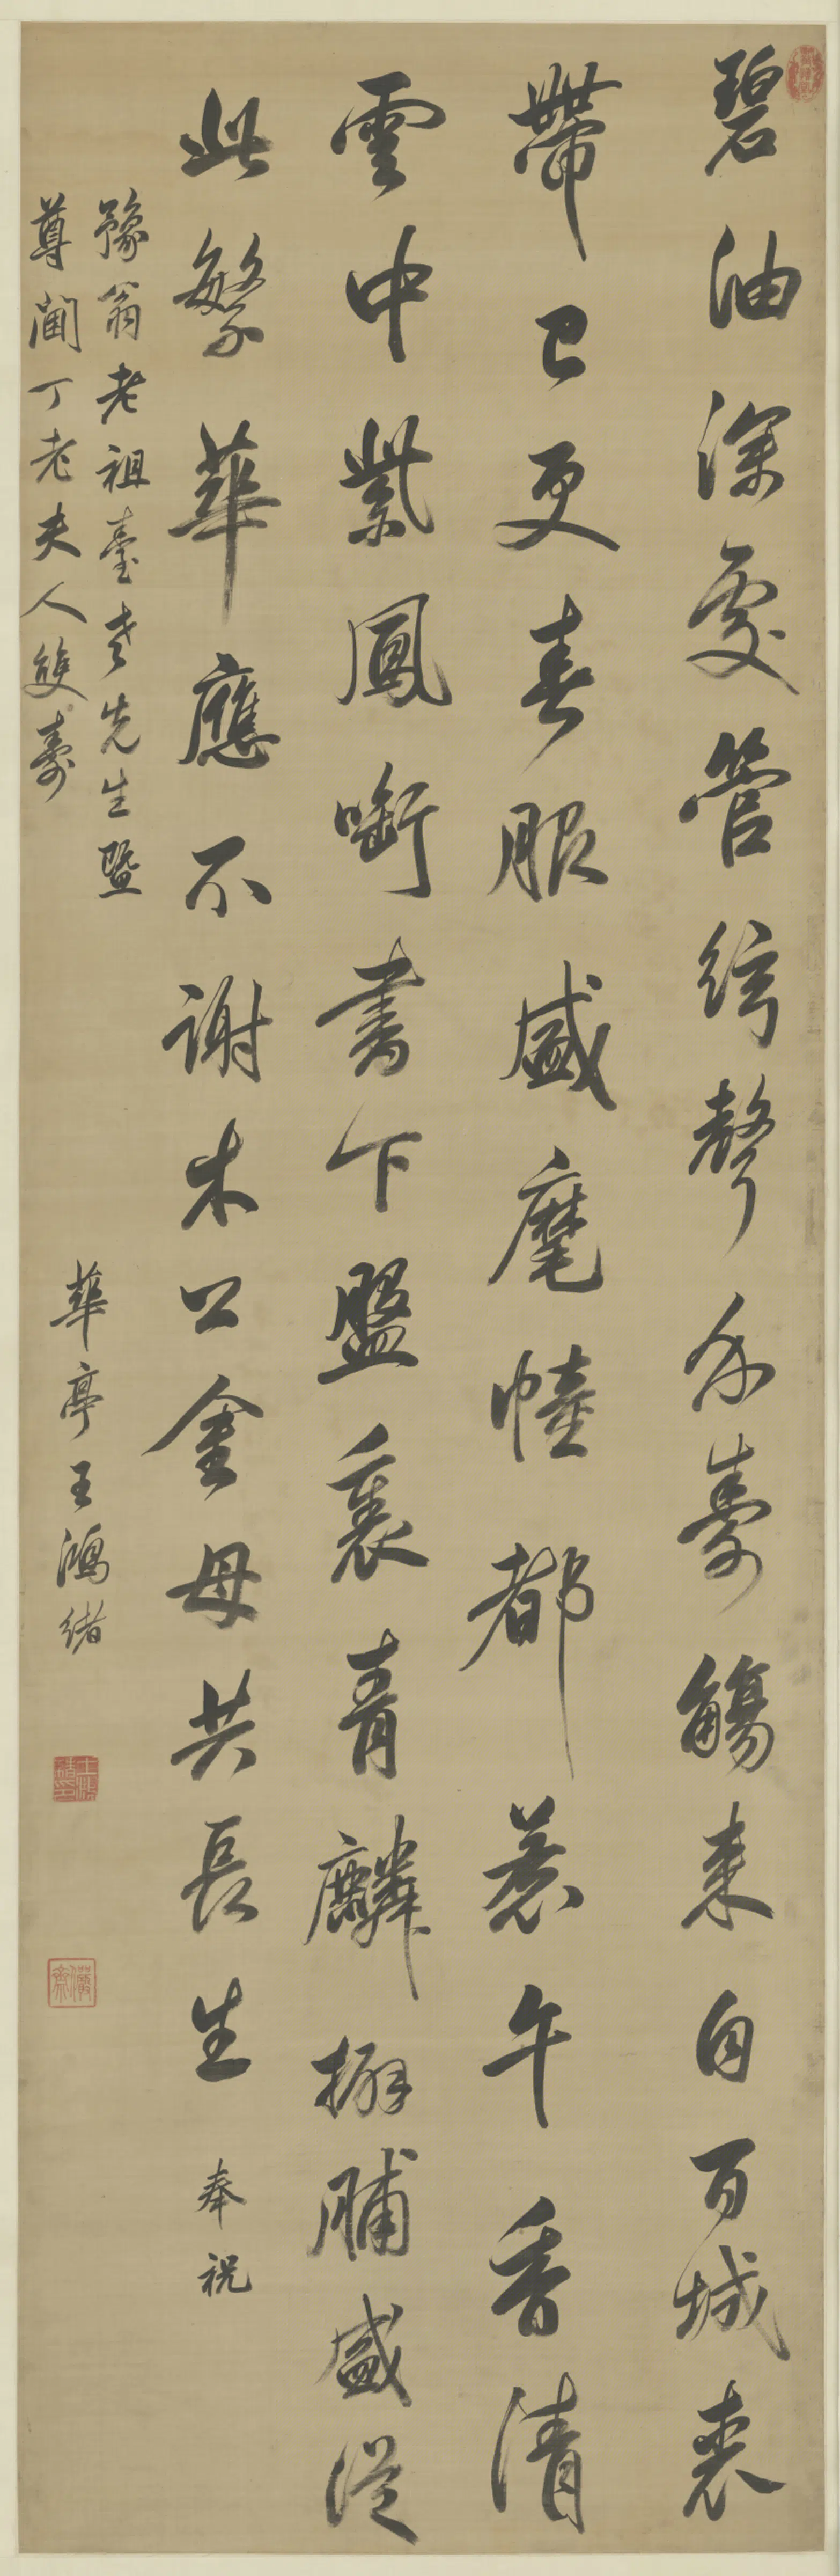 碧油深處管絃聲介壽觴來自百城裘
帶已更春服盛麾幢都惹午香清
雲中紫鳳啣書下盤裏青麟擗脯盛從
此繁華應不謝木公金母共長生 奉祝
豫翁老祖臺老先生暨
尊閫丁老夫人雙壽
華亭王鴻緒
王鴻緒印
儼齋